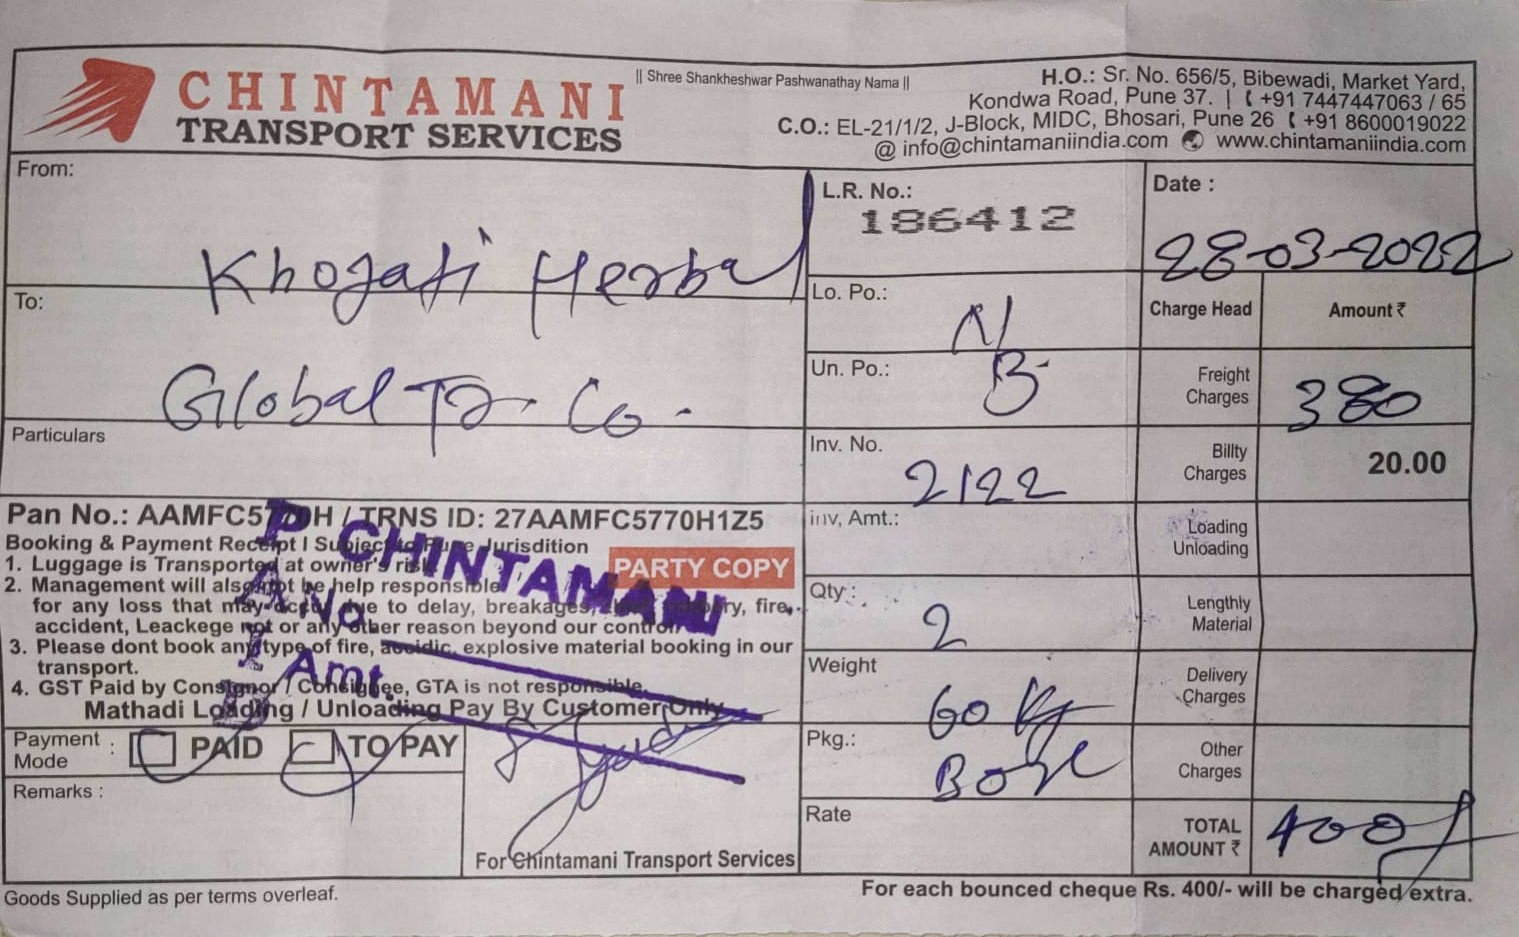 CHINTAMANI
TRANSPORT SERVICES
|| Shree Shankheshwar Pashwanathay Nama ||
H.O.: Sr. No. 656/5, Bibewadi, Market Yard,
Kondwa Road, Pune 37. | +91 7447447063 / 65
C.O.: EL-21/1/2, J-Block, MIDC, Bhosari, Pune 26 +91 8600019022
@ info@chintamaniindia.com www.chintamaniindia.com
From:
Khojati Herbal
To:
Global Tr. Co.
Particulars
L.R. No.:
186412
Date :
28-03-2022
Lo. Po.:
N/
Un. Po.:
B
Inv. No.
2122
inv, Amt.:
Qty :
2
Weight
60 Kg
Pkg.:
Box
Rate
Charge Head Amount ₹
Freight Charges 380
Billty Charges 20.00
Loading Unloading
Lengthly Material
Delivery Charges
Other Charges
TOTAL AMOUNT ₹ 400/
Pan No.: AAMFC5770H / TRNS ID: 27AAMFC5770H1Z5
Booking & Payment Receipt I Subject to Pune Jurisdition
PARTY COPY
1. Luggage is Transported at owner's risk
2. Management will also not be help responsible
for any loss that may occu due to delay, breakages, fire,
accident, Leackege not or any other reason beyond our control
3. Please dont book any type of fire, accidic, explosive material booking in our
transport.
4. GST Paid by Consignor / Consignee, GTA is not responsible.
Mathadi Loading / Unloading Pay By Customer Only
CHINTAMANI
No.
Amt.
Payment Mode : PAID TO PAY
Remarks :
For Chintamani Transport Services
Goods Supplied as per terms overleaf.
For each bounced cheque Rs. 400/- will be charged extra.